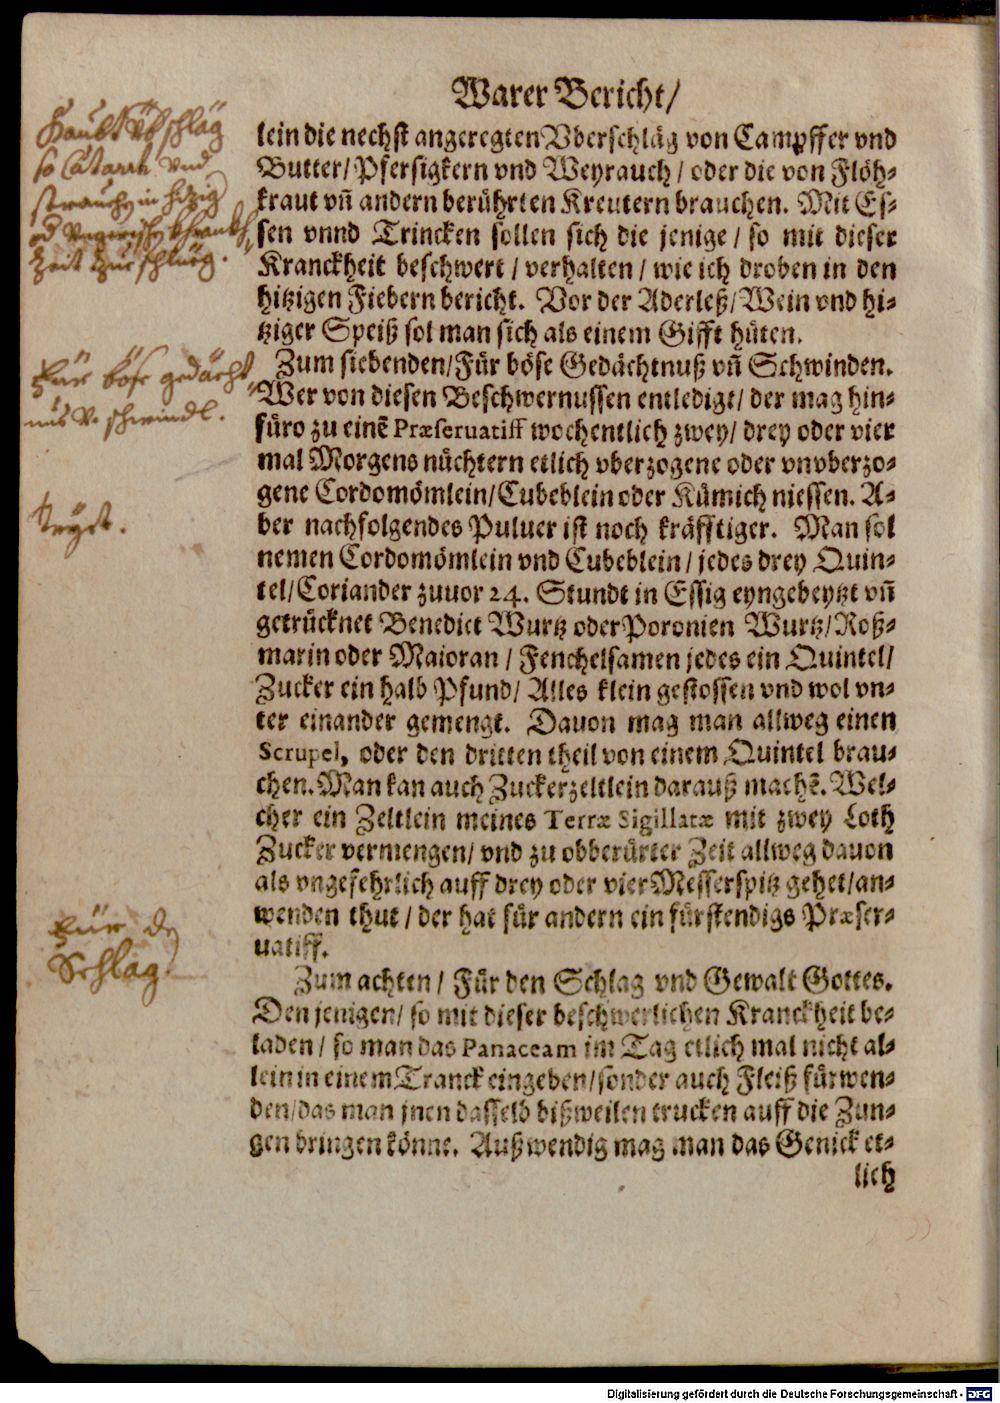 Warer Bericht/
lein die nechst angeregten Vberschläg von Campffer vnd
Butter/Pfersigkern vnd Weyrauch/ oder die von Flöh-
kraut vñ andern berührten Kreutern brauchen. Mit Es-
sen vnnd Trincken sollen sich die jenige/ so mit dieser
Kranckheit beschwert/ verhalten/ wie ich droben in den
hitzigen Fiebern bericht. Vor der Aderleß/Wein vnd hi-
tziger Speiß sol man sich als einem Gifft hüten.
Zum siebenden/Für böse Gedächtnuß vñ Schwinden.
Wer von diesen Beschwernussen entledigt/ der mag hin-
füro zu einē Præseruatiff wochentlich zwey/ drey oder vier
mal Morgens nüchtern etlich vberzogene oder vnvberzo-
gene Cordomömlein/Cubeblein oder Kümich niessen. A-
ber nachfolgendes Puluer ist noch kräfftiger. Man sol
nemen Cordomömlein vnd Cubeblein/ jedes drey Quin-
tel/Coriander zuuor 24. Stundt in Essig eyngebeytzt vñ
getrücknet Benedict Wurtz oder Poronien Wurtz/Roß-
marin oder Maioran/ Fenchelsamen jedes ein Quintel/
Zucker ein halb Pfund/ Alles klein gestossen vnd wol vn-
ter einander gemengt. Dauon mag man allweg einen
Scrupel, oder den dritten theil von einem Quintel brau-
chen. Man kan auch Zuckerzeltlein darauß machē. Wel-
cher ein Zeltlein meines Terræ Sigillatæ mit zwey Loth
Zucker vermengen/ vnd zu obberürter Zeit allweg dauon
als vngefehrlich auff drey oder vier Messerspitz gehet/an-
wenden thut/ der hat für andern ein fürstendigs Præser-
uatiff.
Zum achten/ Für den Schlag vnd Gewalt Gottes.
Den jenigen/ so mit dieser beschwerlichen Kranckheit be-
laden/ so man das Panaceam im Tag etlich mal nicht al-
lein in einem Tranck eingeben/sonder auch Fleiß fürwen-
den/das man jnen dasselb bißweilen trucken auff die Zun-
gen bringen könne. Außwendig mag man das Genick et-
lich
so Catarrh vnd
Für böse gedächt
nus v. schwindl.
Für de
Schlag.
Digitalisierung gefördert durch die Deutsche Forschungsgemeinschaft - DFG